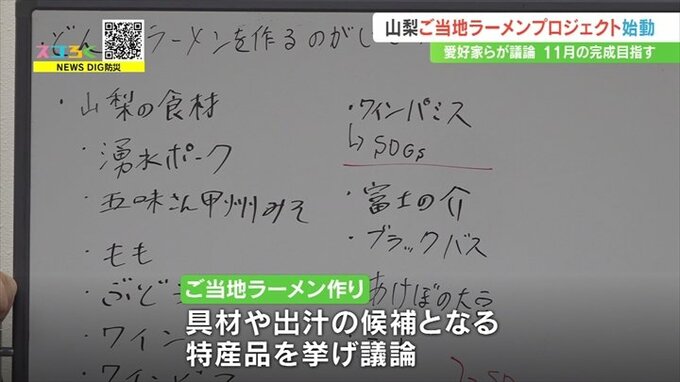 えすろく
NEWS DIG防災
山梨ご当地ラーメンプロジェクト始動
愛好家らが議論 11月の完成目指す
ラーメンを作るのが
・山梨の食材
・湧水ポーク
・五味さん甲州みそ
・もも
・ぶど
・ワイン
・ワインパミス
↳SDGs
・富士の介
・ブラックバス
あけぼの大豆
ご当地ラーメン作り
具材や出汁の候補となる
特産品を挙げ議論